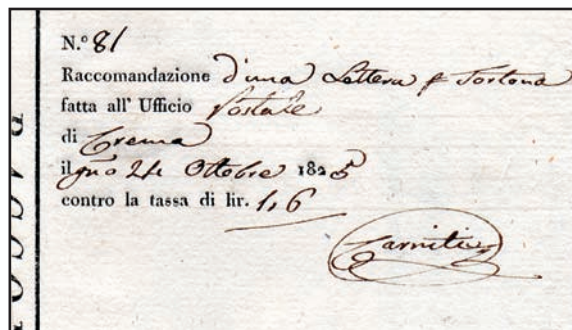 N.º 81
Raccomandazione d'una Lettera p Tortona
fatta all' Ufficio Postale
di Crema
il gno 24 Ottobre 1825
contro la tassa di lir. 1,6